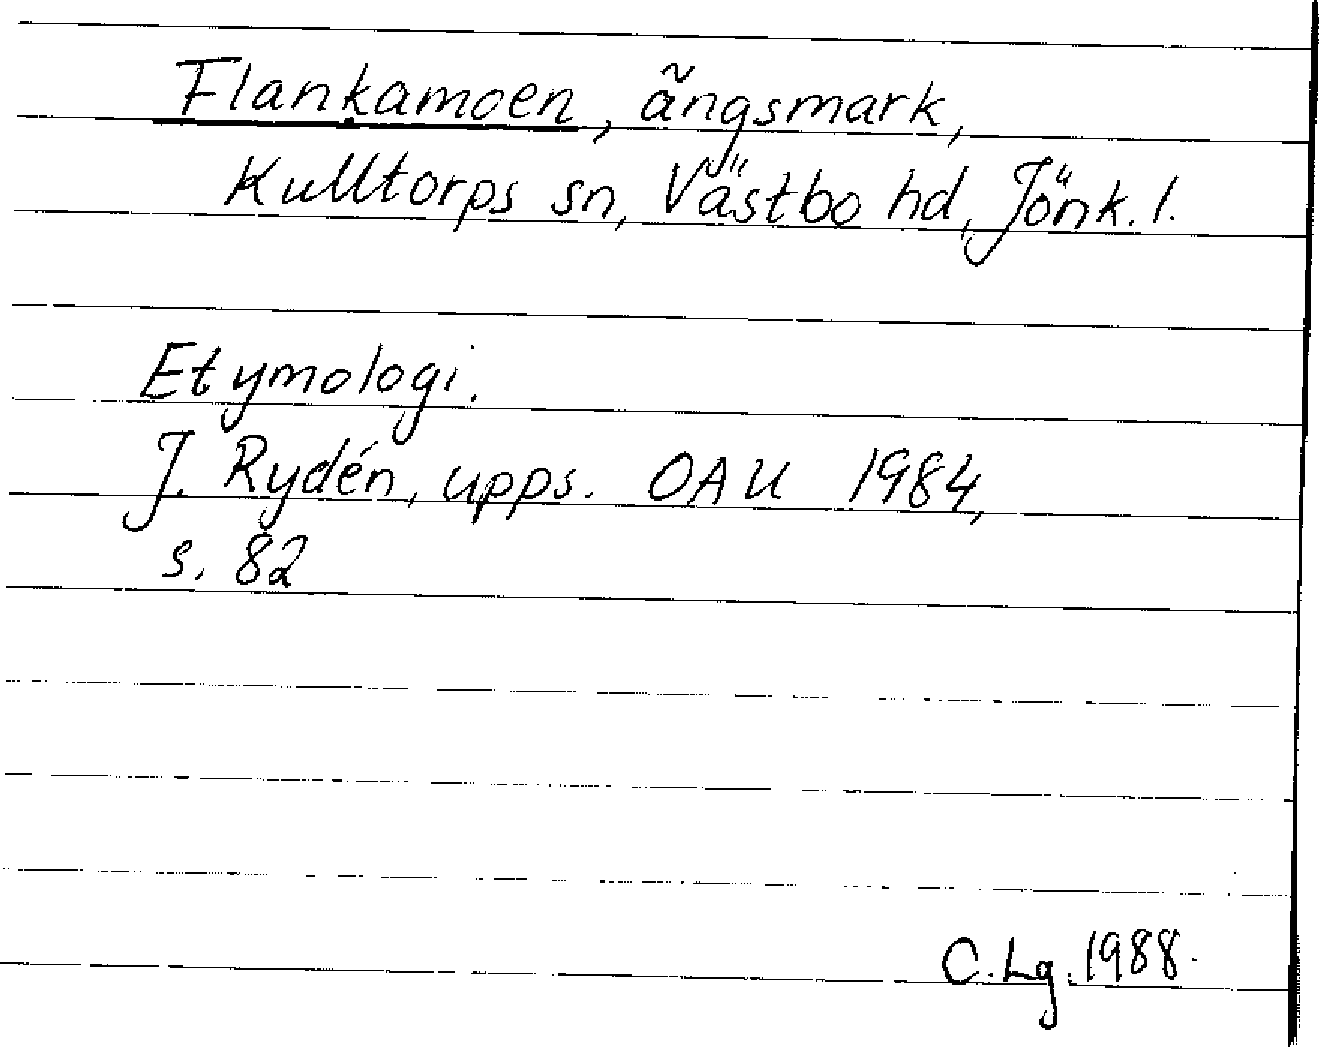 Flankamoen, ängsmark,
Kulltorps sn, Västbo hd, Jönk. l.
Etymologi.
J. Rydén, upps. OAU 1984,
s. 82
C. Lg. 1988.